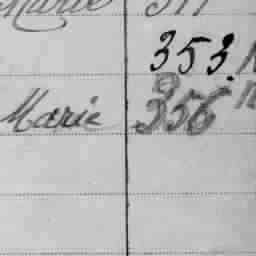 Marie 311
353.
Marie 356